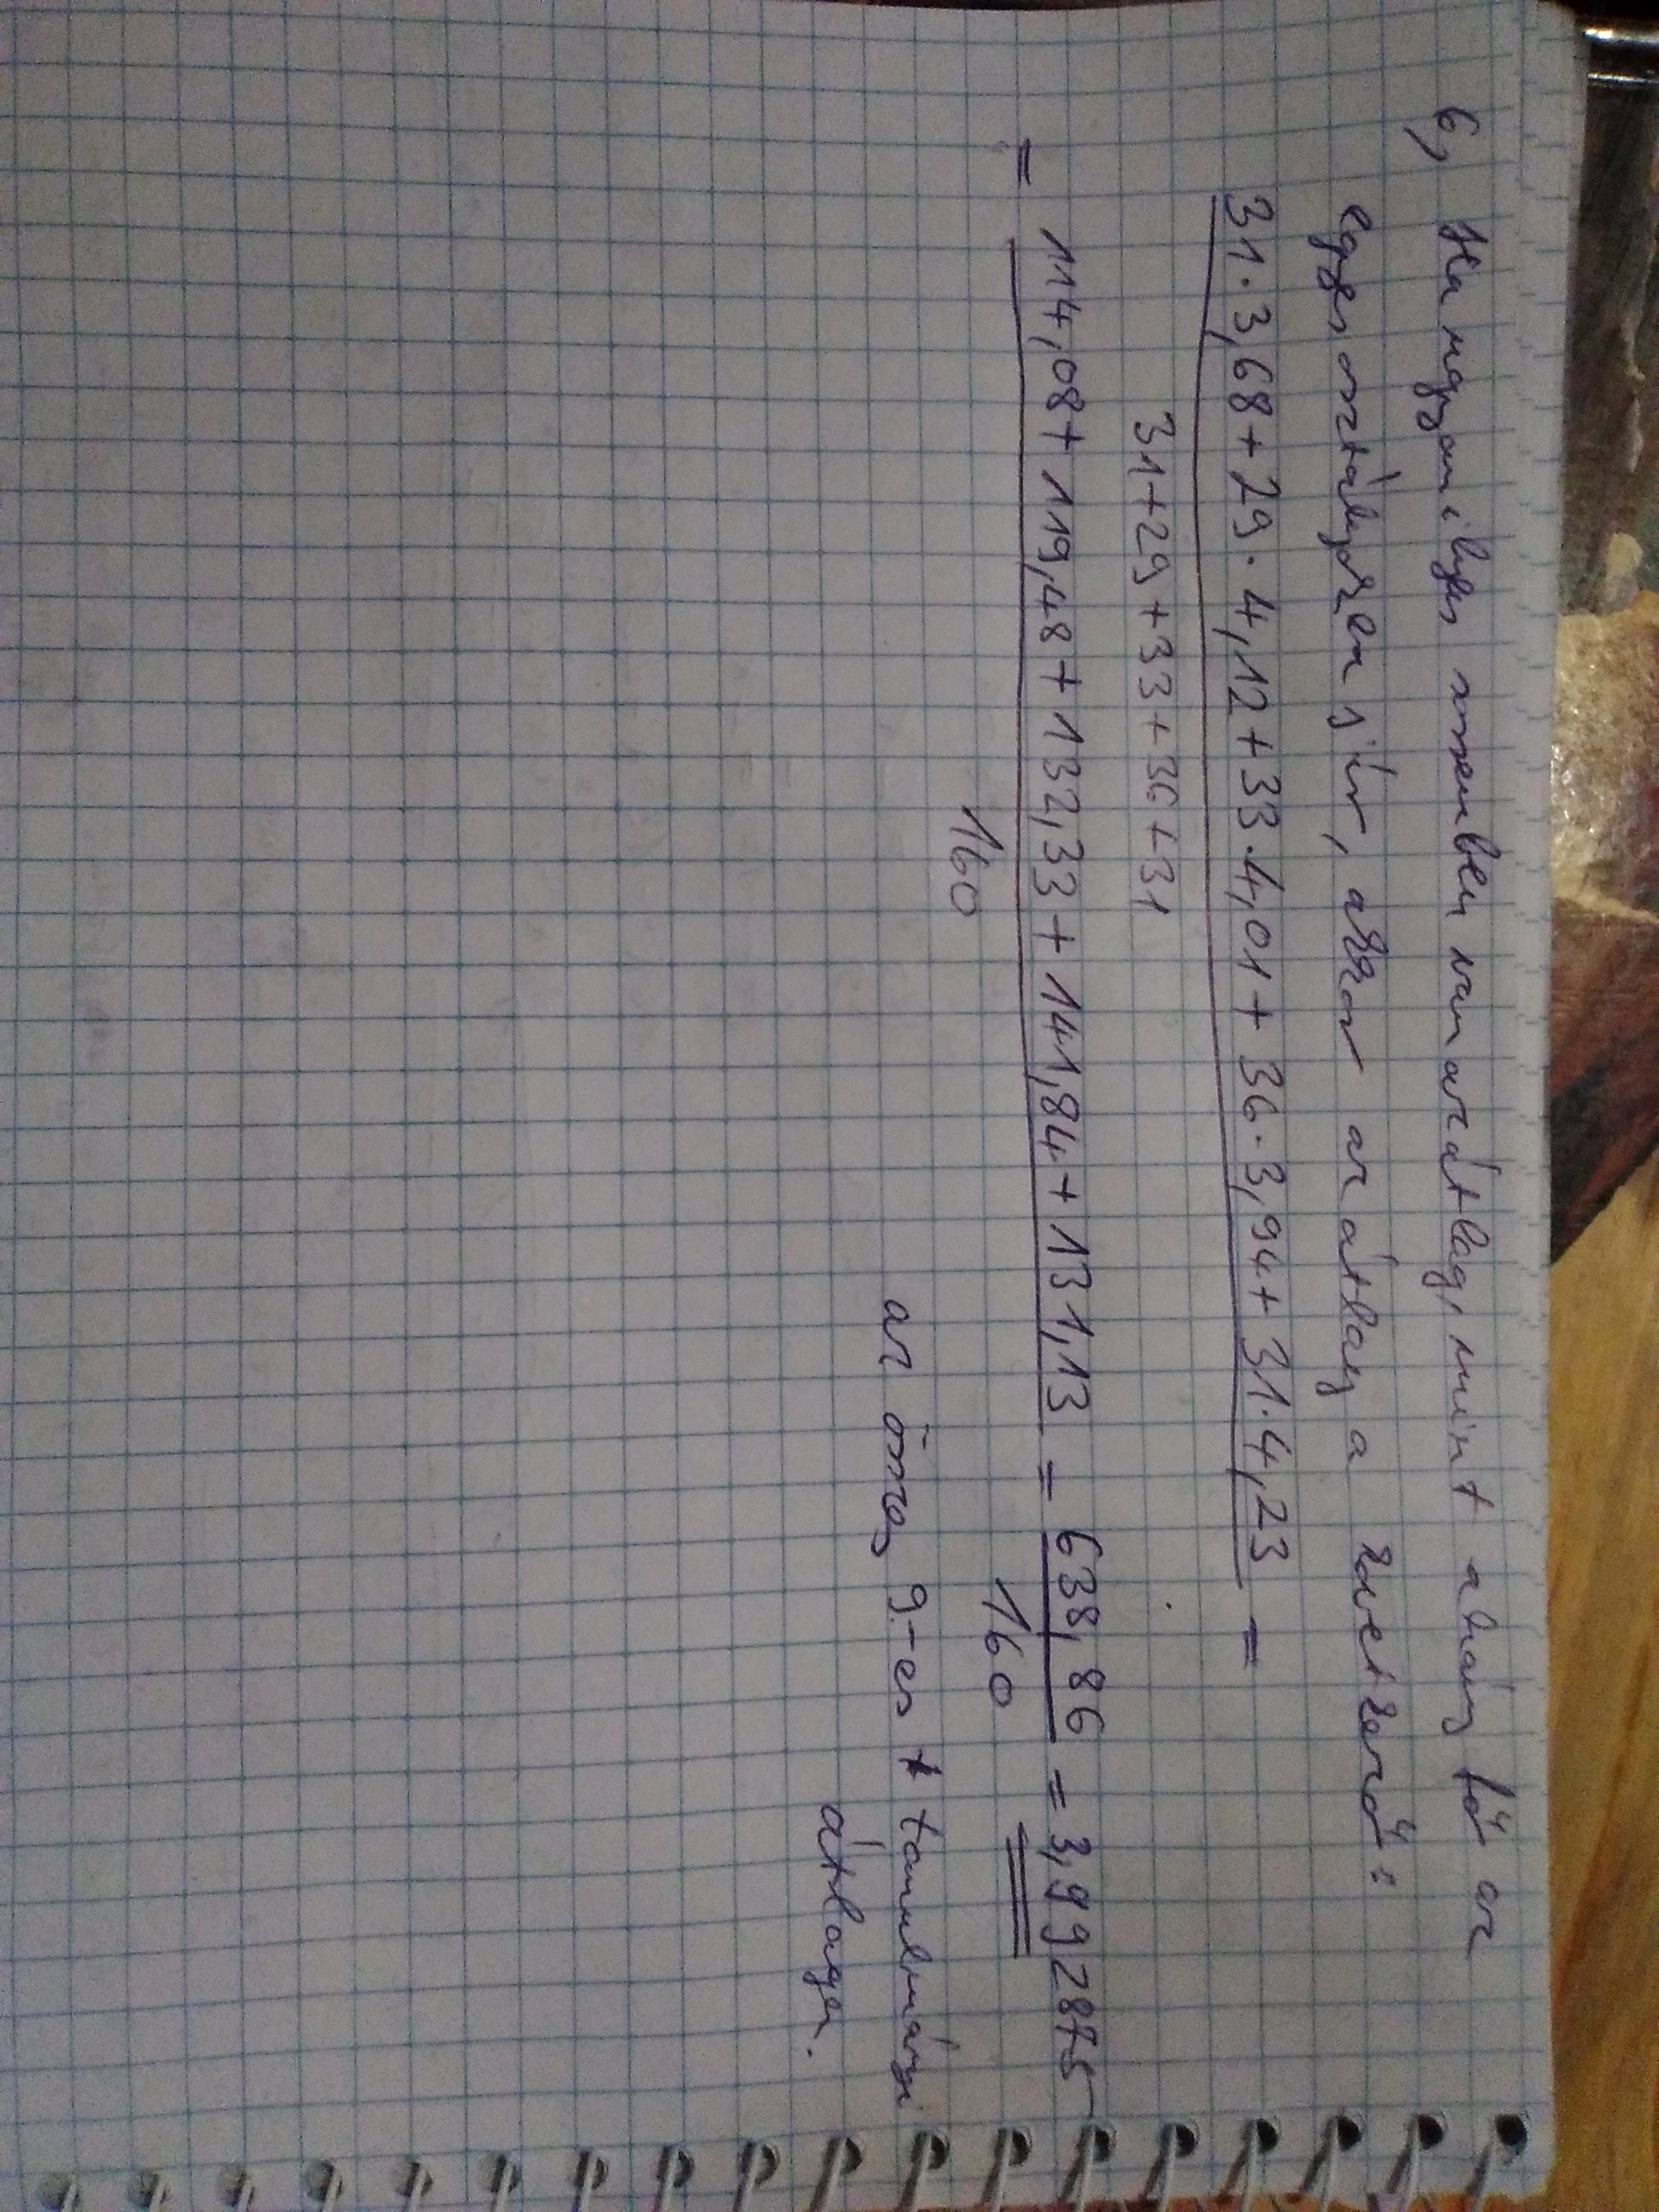 6, Ha ugyanilyen szemben van az átlag, mint ahány fő az
egyes osztályokba jár, akkor az átlag a következő:
31·3,68+29·4,12+33·4,01+36·3,94+31·4,23 =
31+29+33+36+31
= 114,08+119,48+132,33+141,84+131,13 = 638,86 = 3,992875
160 160
az össz. 9.-es tanulmányi
átlaga.